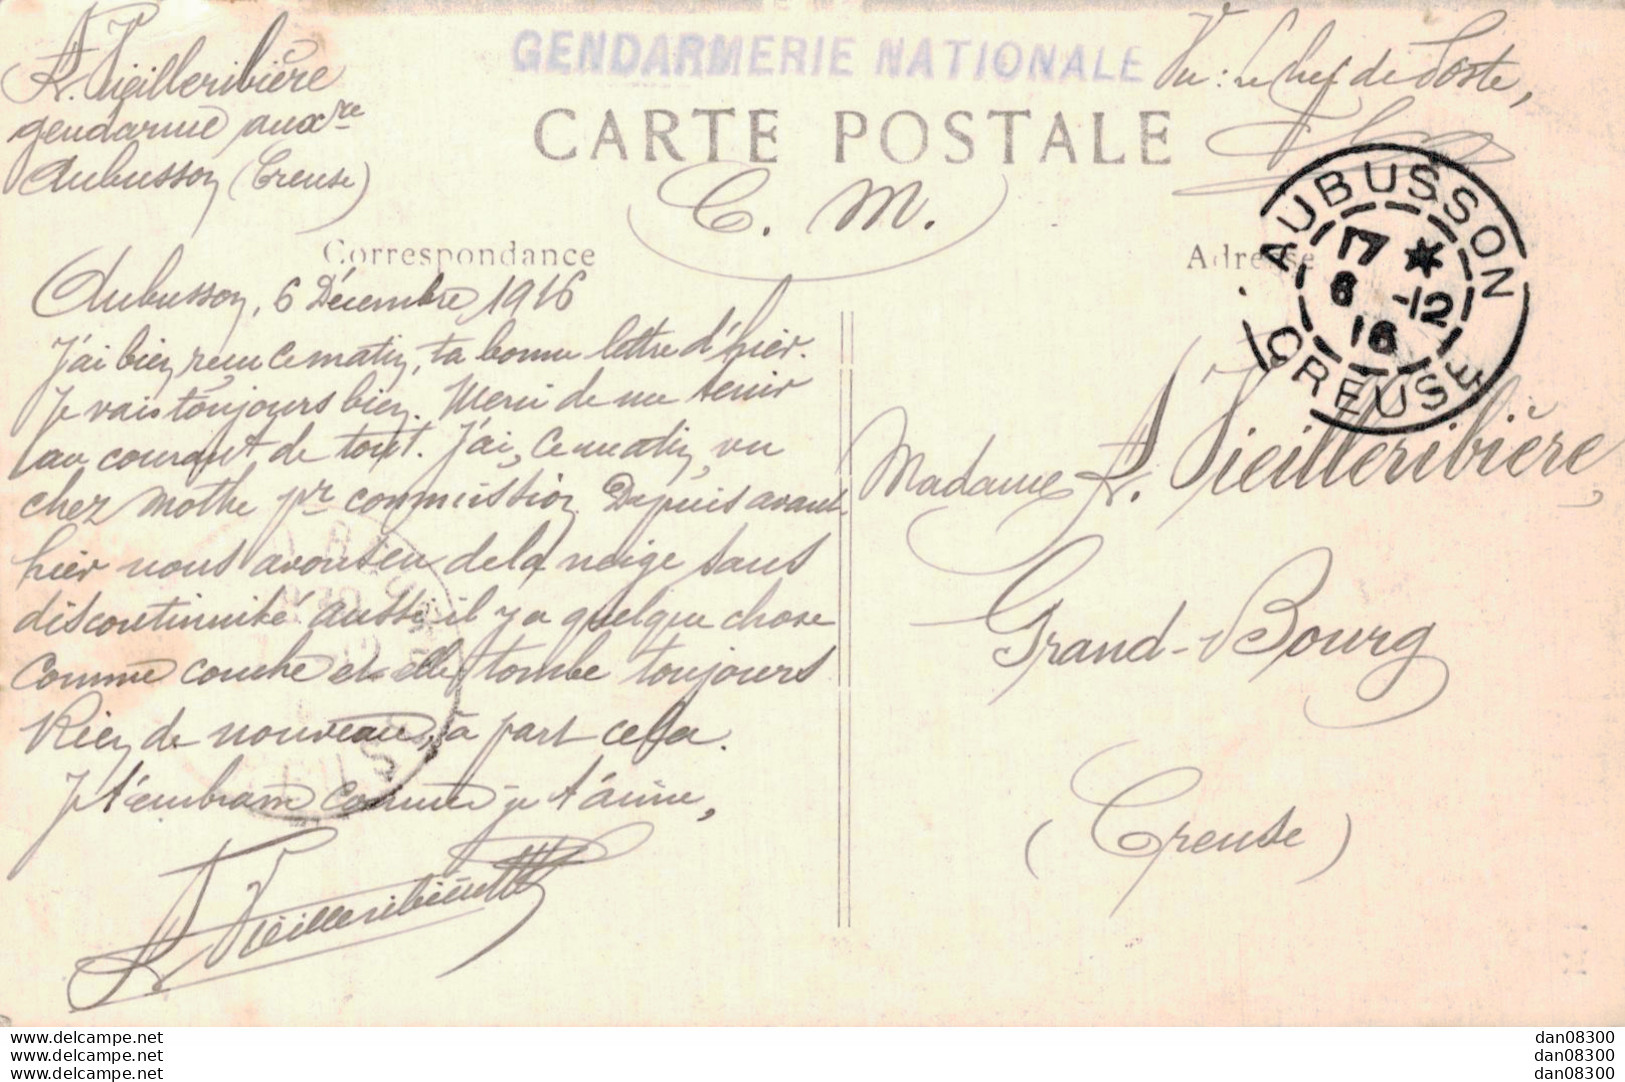 A. Vieilleribière
gendarme auxre
Aubusson (Creuse)
GENDARMERIE NATIONALE
Vu : Le Chef de Poste,
CARTE POSTALE
C. M.
Correspondance
Adresse
AUBUSSON
17 *
6 -12
16
CREUSE
Aubusson, 6 Décembre 1916
J'ai bien reçu ce matin, ta bonne lettre d'hier.
Je vais toujours bien. Merci de me tenir
au courant de tout. J'ai, ce matin, vu
chez Mothe pr commission. Depuis avant-
hier nous avons eu de la neige sans
discontinuité aussi il y a quelque chose
comme couche et elle tombe toujours
Rien de nouveau, à part cela.
Je t'embrasse comme je t'aime,
A. Vieilleribière
Madame A. Vieilleribière,
Grand-Bourg
(Creuse)
www.delcampe.net
www.delcampe.net
www.delcampe.net
dan08300
dan08300
dan08300